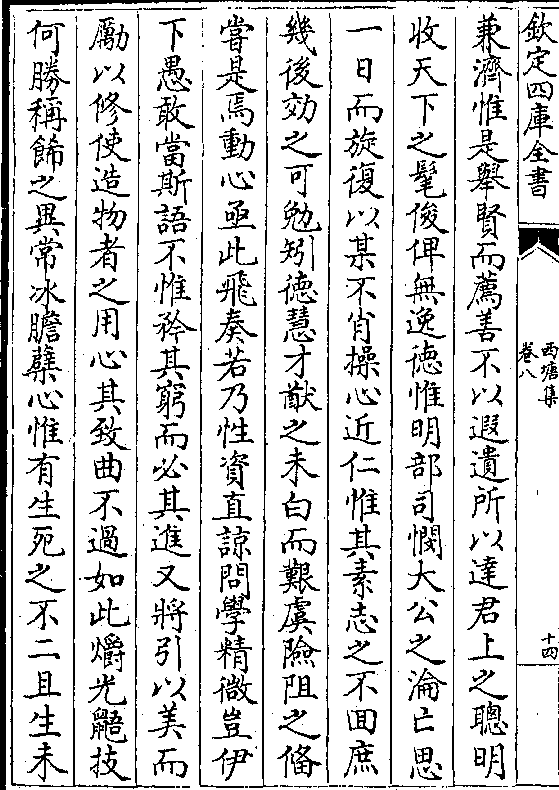 欽定四庫全書
西塘集
卷八
十四
兼濟惟是舉賢而薦善不以遐遺所以達君上之聰明
收天下之髦俊俾無逸德惟明部司憫大公之淪亡思
一日而旋復以某不肖操心近仁惟其素志之不回庶
幾後効之可勉矧德慧才猷之未白而艱虞險阻之偹
嘗是焉動心亟此飛奏若乃性資直諒問學精微豈伊
下愚敢當斯語不惟矜其窮而必其進又將引以美而
勵以修使造物者之用心其致曲不過如此爝光鼯技
何勝稱餙之異常冰膽蘖心惟有生死之不二且生未